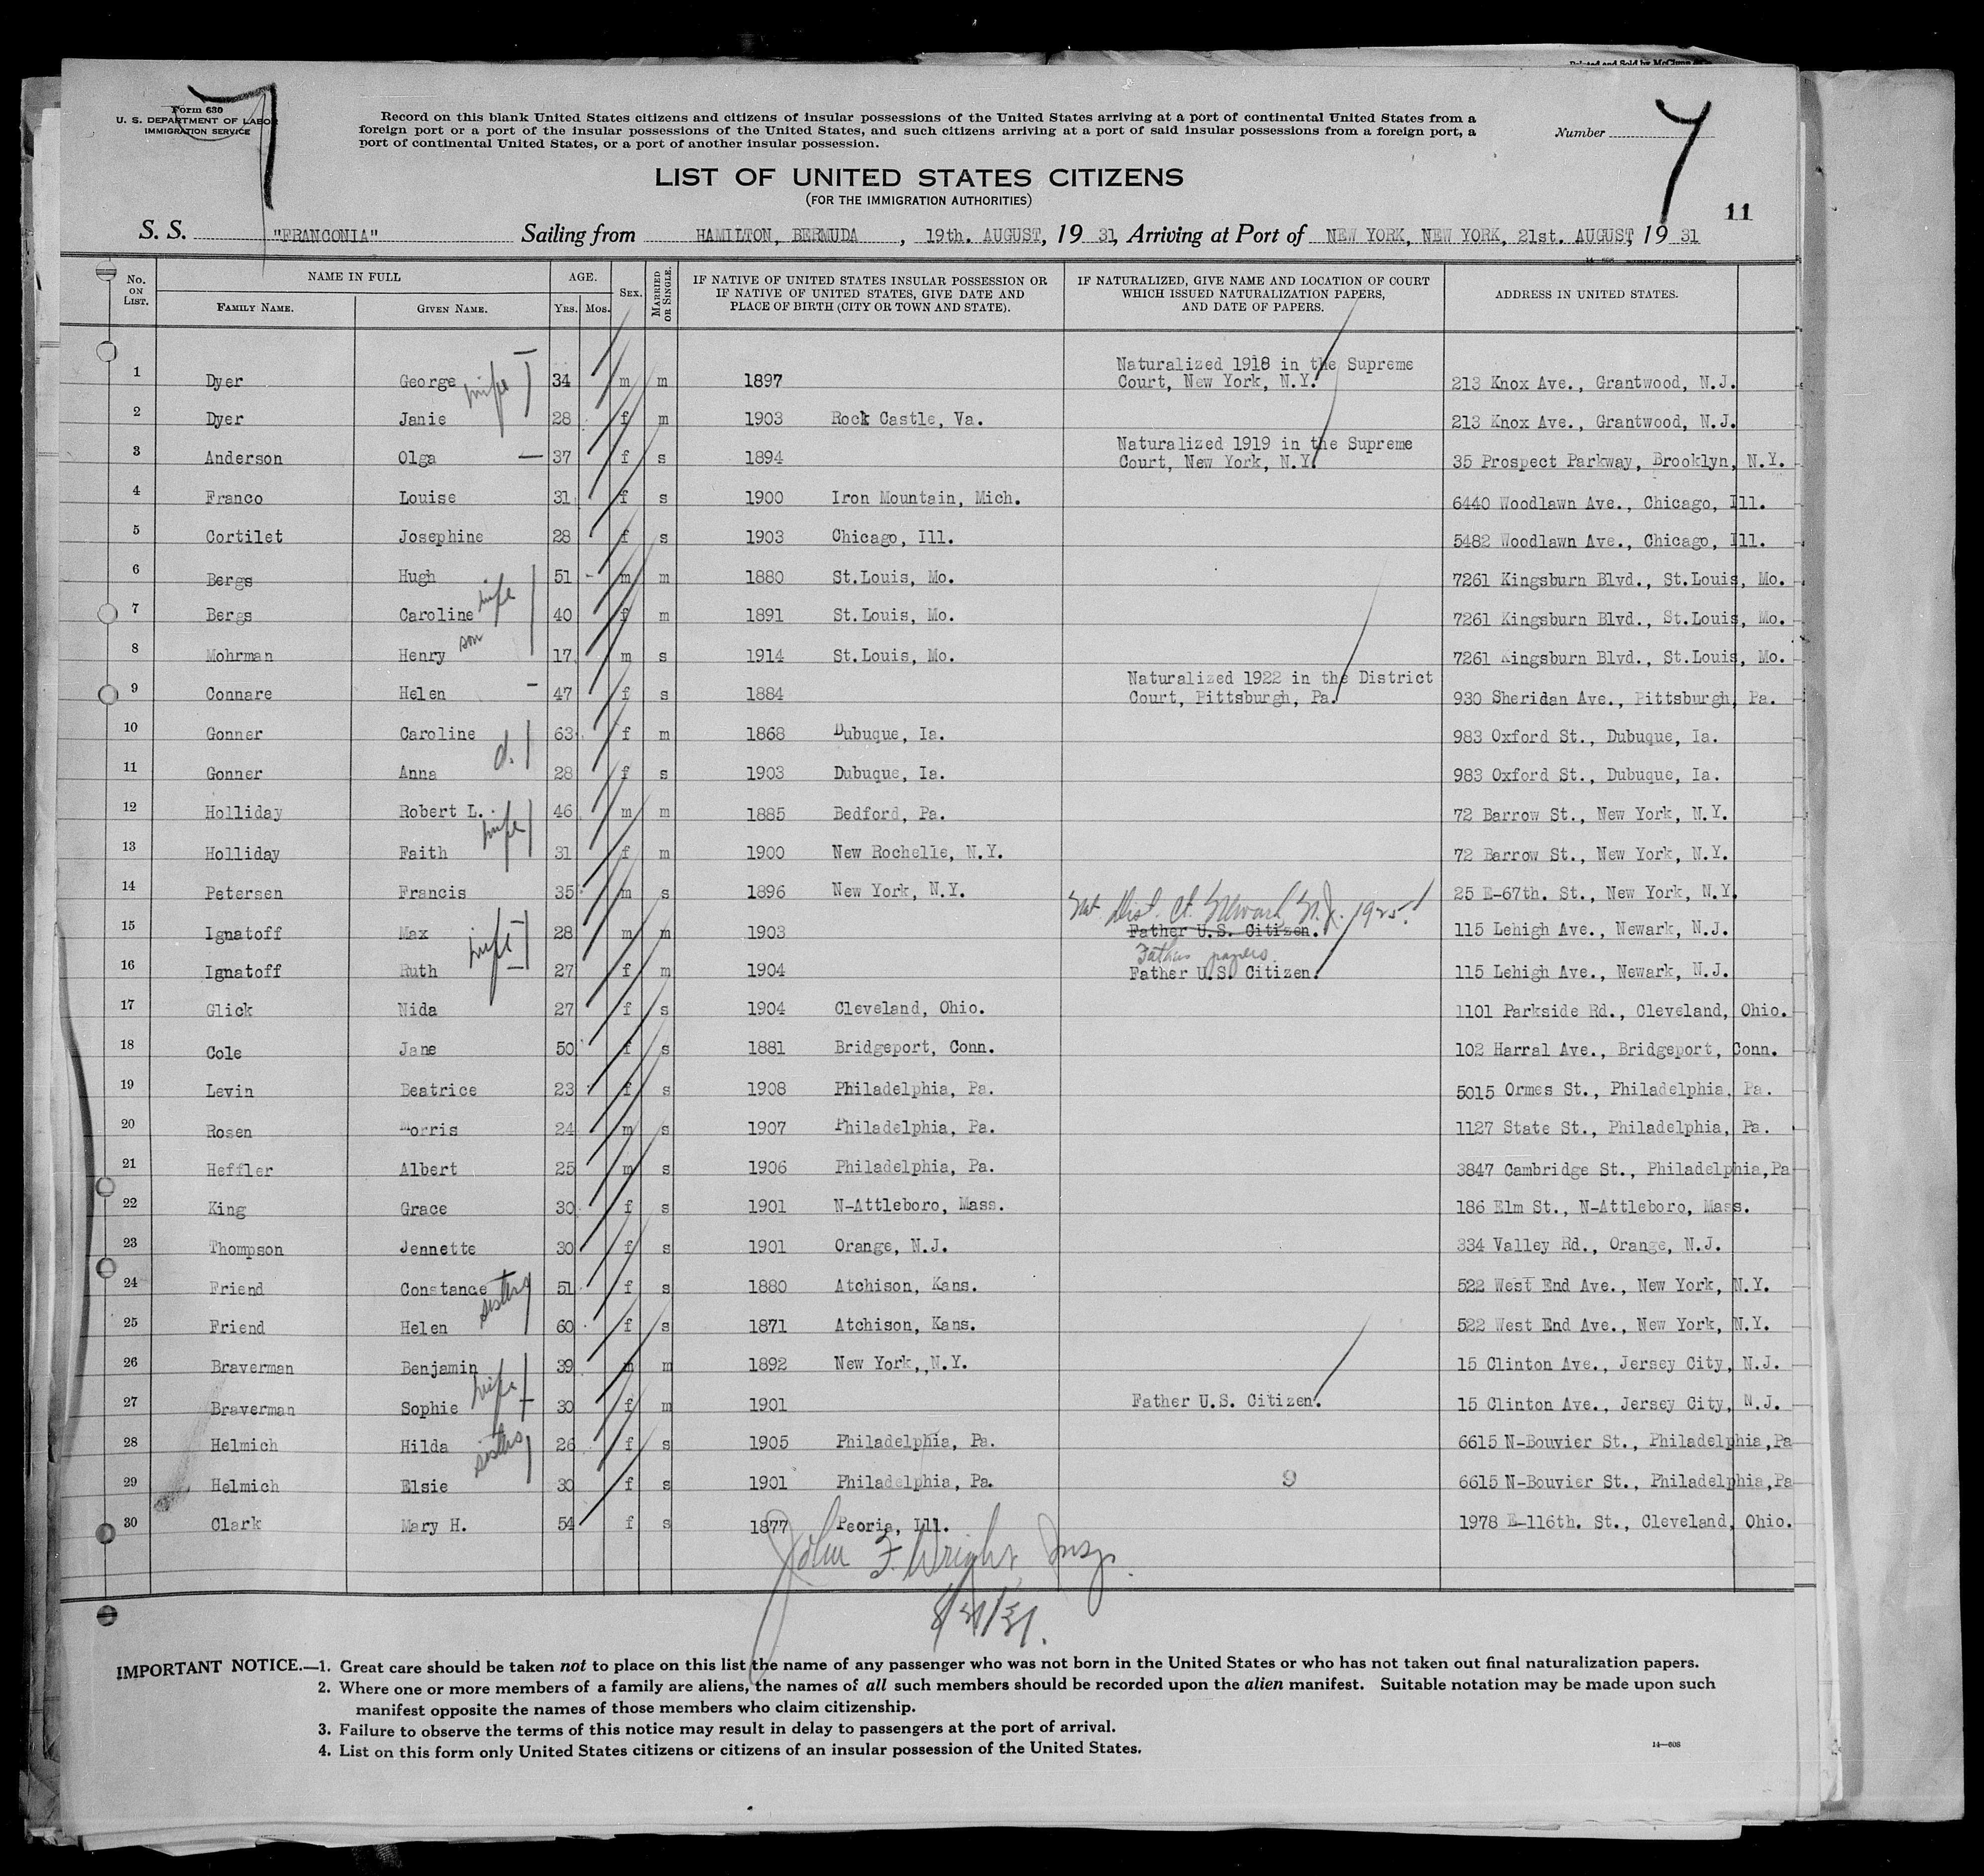 Printed and Sold by McClung
Form 630
U. S. DEPARTMENT OF LABOR
IMMIGRATION SERVICE
7
Record on this blank United States citizens and citizens of insular possessions of the United States arriving at a port of continental United States from a
foreign port or a port of the insular possessions of the United States, and such citizens arriving at a port of said insular possessions from a foreign port, a
port of continental United States, or a port of another insular possession.
Number
7
LIST OF UNITED STATES CITIZENS
(FOR THE IMMIGRATION AUTHORITIES)
11
S. S. "FRANCONIA" Sailing from HAMILTON, BERMUDA, 19th. AUGUST, 19 31, Arriving at Port of NEW YORK, NEW YORK, 21st. AUGUST, 19 31
14—608
No. ON LIST. NAME IN FULL FAMILY NAME. GIVEN NAME. AGE. YRS. MOS. SEX. MARRIED OR SINGLE. IF NATIVE OF UNITED STATES INSULAR POSSESSION OR IF NATIVE OF UNITED STATES, GIVE DATE AND PLACE OF BIRTH (CITY OR TOWN AND STATE). IF NATURALIZED, GIVE NAME AND LOCATION OF COURT WHICH ISSUED NATURALIZATION PAPERS, AND DATE OF PAPERS. ADDRESS IN UNITED STATES.
1 Dyer George wife 34 m m 1897 Naturalized 1918 in the Supreme Court, New York, N.Y. 213 Knox Ave., Grantwood, N.J.
2 Dyer Janie 28 f m 1903 Rock Castle, Va. 213 Knox Ave., Grantwood, N.J.
3 Anderson Olga — 37 f s 1894 Naturalized 1919 in the Supreme Court, New York, N.Y. 35 Prospect Parkway, Brooklyn, N.Y.
4 Franco Louise 31 f s 1900 Iron Mountain, Mich. 6440 Woodlawn Ave., Chicago, Ill.
5 Cortilet Josephine 28 f s 1903 Chicago, Ill. 5482 Woodlawn Ave., Chicago, Ill.
6 Bergs Hugh 51 m m 1880 St.Louis, Mo. 7261 Kingsburn Blvd., St.Louis, Mo.
7 Bergs Caroline wife 40 f m 1891 St.Louis, Mo. 7261 Kingsburn Blvd., St.Louis, Mo.
8 Mohrman Henry son 17 m s 1914 St.Louis, Mo. 7261 Kingsburn Blvd., St.Louis, Mo.
9 Connare Helen — 47 f s 1884 Naturalized 1922 in the District Court, Pittsburgh, Pa. 930 Sheridan Ave., Pittsburgh, Pa.
10 Gonner Caroline 63 f m 1868 Dubuque, Ia. 983 Oxford St., Dubuque, Ia.
11 Gonner Anna d. 28 f s 1903 Dubuque, Ia. 983 Oxford St., Dubuque, Ia.
12 Holliday Robert L. wife 46 m m 1885 Bedford, Pa. 72 Barrow St., New York, N.Y.
13 Holliday Faith 31 f m 1900 New Rochelle, N.Y. 72 Barrow St., New York, N.Y.
14 Petersen Francis 35 m s 1896 New York, N.Y. 25 E-67th. St., New York, N.Y.
Nat Dist. Ct. Newark, N.J. 1925.
15 Ignatoff Max wife 28 m m 1903 Father U.S. Citizen. 115 Lehigh Ave., Newark, N.J.
Fathers papers
16 Ignatoff Ruth 27 f m 1904 Father U.S. Citizen. 115 Lehigh Ave., Newark, N.J.
17 Glick Nida 27 f s 1904 Cleveland, Ohio. 1101 Parkside Rd., Cleveland, Ohio.
18 Cole Jane 50 f s 1881 Bridgeport, Conn. 102 Harral Ave., Bridgeport, Conn.
19 Levin Beatrice 23 f s 1908 Philadelphia, Pa. 5015 Ormes St., Philadelphia, Pa.
20 Rosen Morris 24 m s 1907 Philadelphia, Pa. 1127 State St., Philadelphia, Pa.
21 Heffler Albert 25 m s 1906 Philadelphia, Pa. 3847 Cambridge St., Philadelphia,Pa
22 King Grace 30 f s 1901 N-Attleboro, Mass. 186 Elm St., N-Attleboro, Mass.
23 Thompson Jennette 30 f s 1901 Orange, N.J. 334 Valley Rd., Orange, N.J.
24 Friend Constance sisters 51 f s 1880 Atchison, Kans. 522 West End Ave., New York, N.Y.
25 Friend Helen 60 f s 1871 Atchison, Kans. 522 West End Ave., New York, N.Y.
26 Braverman Benjamin 39 m m 1892 New York, N.Y. 15 Clinton Ave., Jersey City, N.J.
27 Braverman Sophie wife 30 f m 1901 Father U.S. Citizen. 15 Clinton Ave., Jersey City, N.J.
28 Helmich Hilda sisters 26 f s 1905 Philadelphia, Pa. 6615 N-Bouvier St., Philadelphia,Pa
29 Helmich Elsie 30 f s 1901 Philadelphia, Pa. 9 6615 N-Bouvier St., Philadelphia,Pa
30 Clark Mary H. 54 f s 1877 Peoria, Ill. 1978 E-116th. St., Cleveland, Ohio.
John F. Wright, Insp.
8/21/31.
IMPORTANT NOTICE.—1. Great care should be taken not to place on this list the name of any passenger who was not born in the United States or who has not taken out final naturalization papers.
2. Where one or more members of a family are aliens, the names of all such members should be recorded upon the alien manifest. Suitable notation may be made upon such
manifest opposite the names of those members who claim citizenship.
3. Failure to observe the terms of this notice may result in delay to passengers at the port of arrival.
4. List on this form only United States citizens or citizens of an insular possession of the United States.
14—608